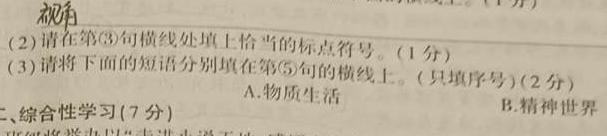 视角
(2)请在第③句横线处填上恰当的标点符号。(1分)
(3)请将下面的短语分别填在第⑤句的横线上。(只填序号)(2分)
A.物质生活 B.精神世界
二、综合性学习(7分)